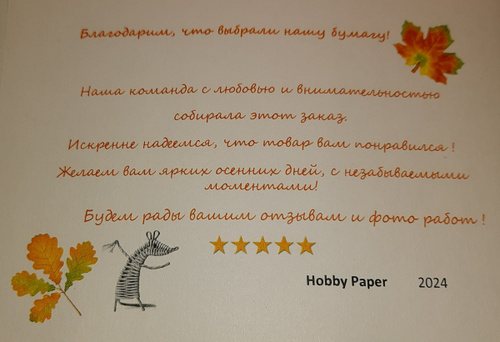 Благодарим, что выбрали нашу бумагу!
Наша команда с любовью и внимательностью
собирала этот заказ.
Искренне надеемся, что товар вам понравился !
Желаем вам ярких осенних дней, с незабываемыми
моментами!
Будем рады вашим отзывам и фото работ !
Hobby Paper 2024